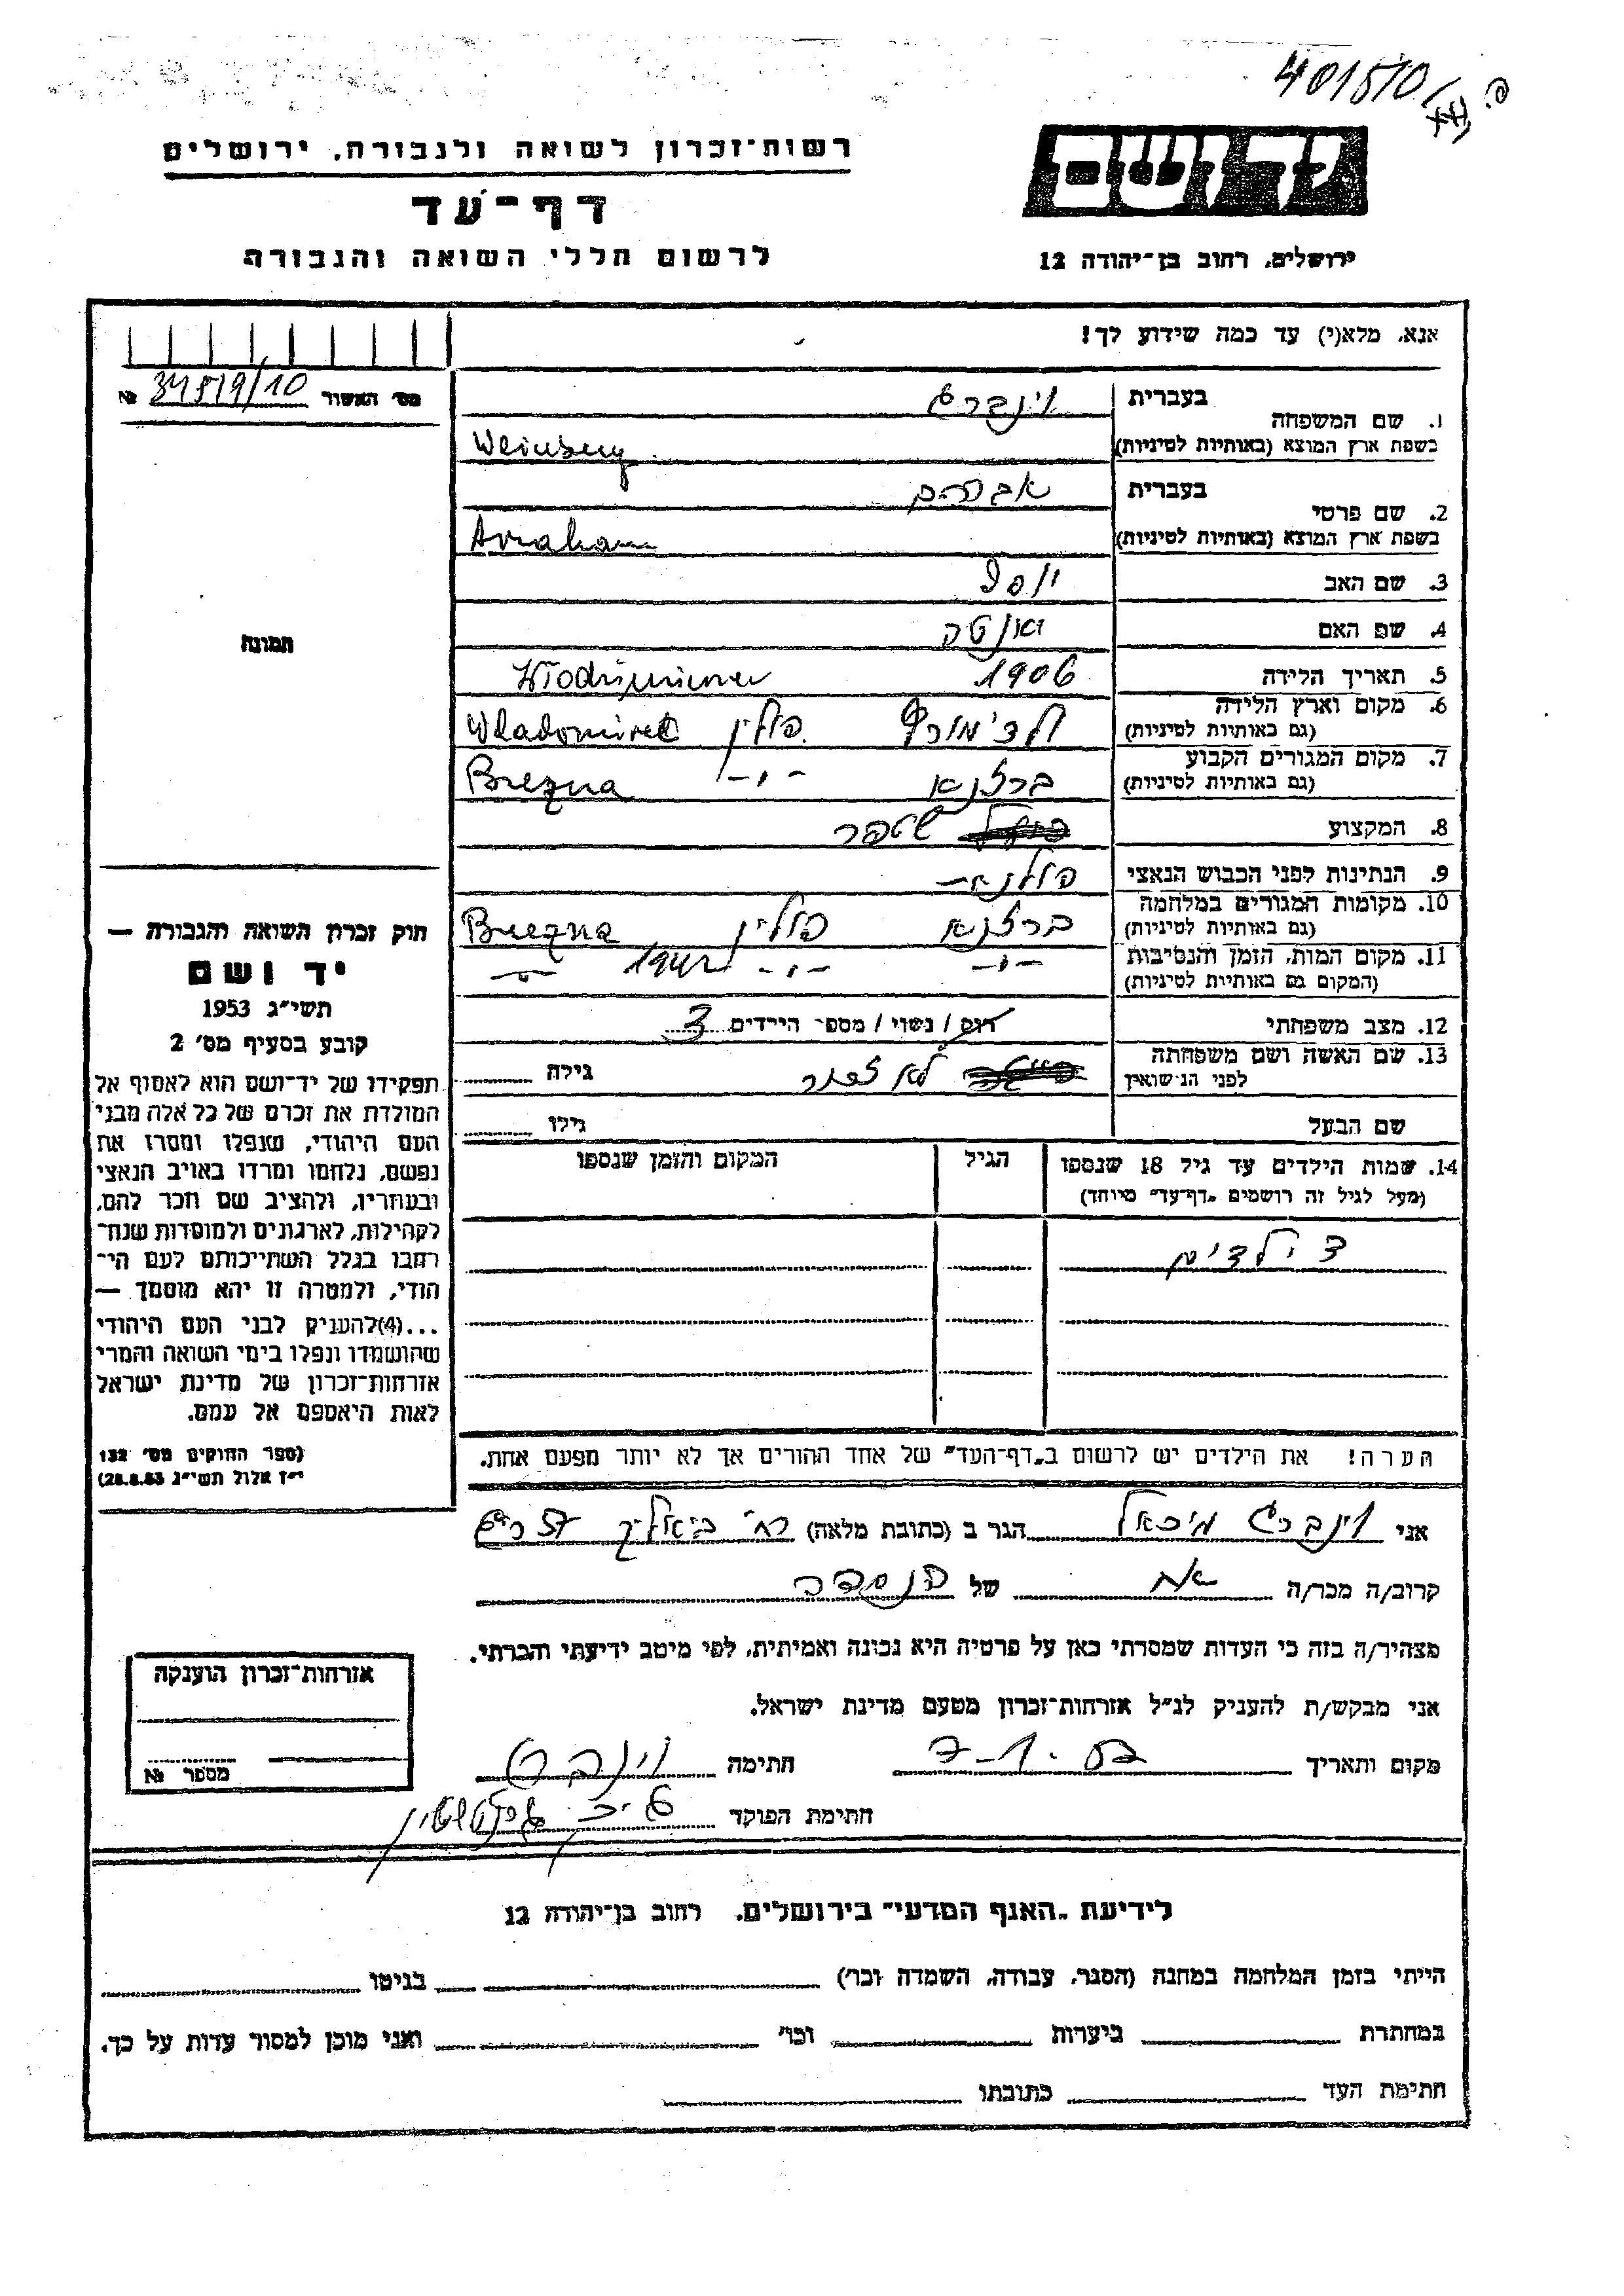 401510
רשות-זכרון לשואה ולגבורה, ירושלים
דף-עד
לרשום חללי השואה והגבורה
יד ושם
ירושלים, רחוב בן-יהודה 12
אנא, מלא(י) עד כמה שידוע לך!
מס' האשור 34519/10 №
תמונה
1. שם המשפחה
בעברית וינברג
בשפת ארץ המוצא (באותיות לטיניות) Weinberg
2. שם פרטי
בעברית אברהם
בשפת ארץ המוצא (באותיות לטיניות) Avraham
3. שם האב יוסף
4. שם האם
5. תאריך הלידה 1906
6. מקום וארץ הלידה
(גם באותיות לטיניות) פולין
7. מקום המגורים הקבוע
(גם באותיות לטיניות) ברזנא -"- Brezna
8. המקצוע
9. הנתינות לפני הכבוש הנאצי
10. מקומות המגורים במלחמה
(גם באותיות לטיניות) ברזנא פולין Brezna
11. מקום המות, הזמן והנסיבות
(המקום גם באותיות לטיניות) -"- -"- 1942
12. מצב משפחתי רוק / נשוי / מספר הילדים 3
13. שם האשה ושם משפחתה
לפני הנישואין לא זכור גילה
שם הבעל גילו
14. שמות הילדים עד גיל 18 שנספו
(מעל לגיל זה רושמים „דף-עד" מיוחד)
הגיל
המקום והזמן שנספו
3 ילדים
הערה! את הילדים יש לרשום ב„דף-העד" של אחד ההורים אך לא יותר מפעם אחת.
חוק זכרון השואה והגבורה —
יד ושם
תשי"ג 1953
קובע בסעיף מס' 2
תפקידו של יד-ושם הוא לאסוף אל
המולדת את זכרם של כל אלה מבני
העם היהודי, שנפלו ומסרו את
נפשם, נלחמו ומרדו באויב הנאצי
ובעוזריו, ולהציב שם וזכר להם,
לקהילות, לארגונים ולמוסדות שנח-
רבו בגלל השתייכותם לעם הי-
הודי, ולמטרה זו יהא מוסמך —
...(4)להעניק לבני העם היהודי
שהושמדו ונפלו בימי השואה והמרי
אזרחות-זכרון של מדינת ישראל
לאות היאספם אל עמם.
(ספר החוקים מס' 132
י"ז אלול תשי"ג 28.8.53)
אני וינברג מיכאל הגר ב (כתובת מלאה) רח' ביאליק
קרוב/ה מכר/ה אח של הנספה
מצהיר/ה בזה כי העדות שמסרתי כאן על פרטיה היא נכונה ואמיתית, לפי מיטב ידיעתי והכרתי.
אני מבקש/ת להעניק לנ"ל אזרחות-זכרון מטעם מדינת ישראל.
מקום ותאריך חתימה וינברג
חתימת הפוקד
אזרחות-זכרון הוענקה
מספר №
לידיעת „האגף המדעי" בירושלים, רחוב בן-יהודה 12
הייתי בזמן המלחמה במחנה (הסגר, עבודה, השמדה וכו') בגיטו
במחתרת ביערות וכו' ואני מוכן למסור עדות על כך.
חתימת העד כתובתו